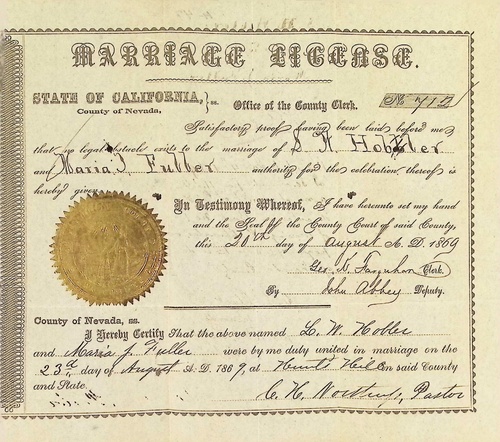 MARRIAGE LICENSE.
STATE OF CALIFORNIA, } ss. Office of the County Clerk. No 712
County of Nevada,
Satisfactory proof having been laid before me,
that no legal obstacle exists to the marriage of S. W. Hobbler
and Maria J. Fuller authority for the celebration thereof is
hereby given
In Testimony Whereof, I have hereunto set my hand
and the Seal of the County Court of said County,
this 20th day of August A. D. 1869
Geo. K. Farquhar Clerk.
By John Abbey Deputy.
County of Nevada, ss.
I Hereby Certify That the above named L. W. Hobler
and Maria J. Fuller were by me duly united in marriage on the
23d day of August A. D. 1869 at Hunts Hill in said County
and State.
C. H. Northup, Pastor